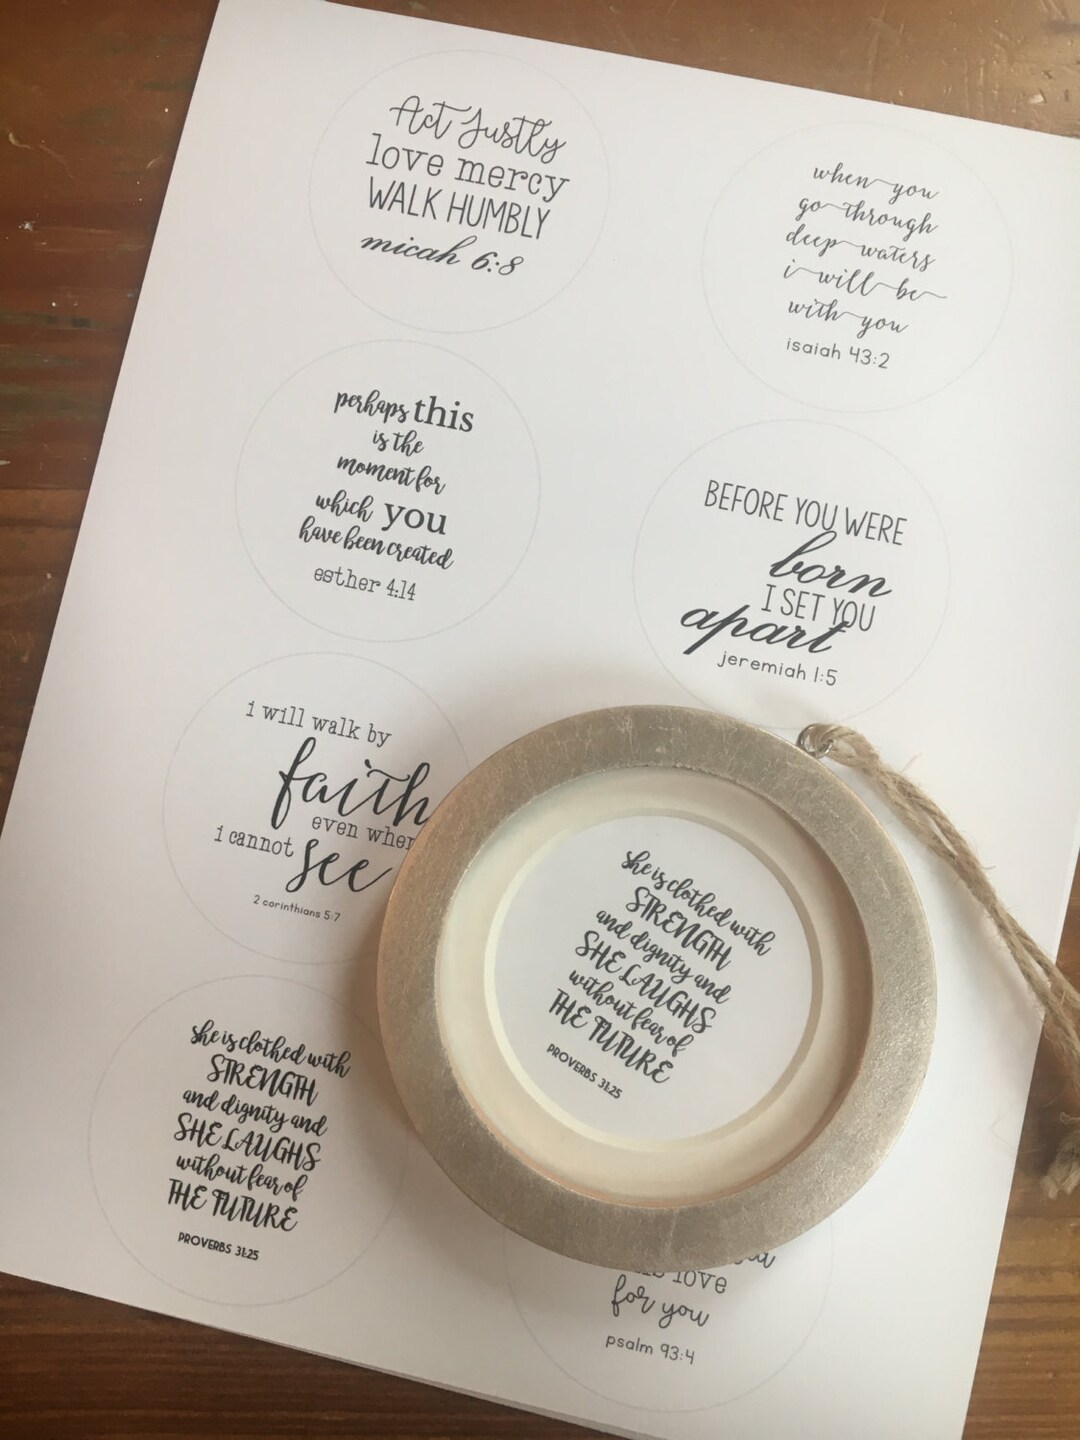 Act Justly
love mercy
WALK HUMBLY
micah 6:8
when you
go through
deep waters
i will be
with you
isaiah 43:2
perhaps this
is the
moment for
which you
have been created
esther 4:14
BEFORE YOU WERE
born
I SET YOU
apart
jeremiah 1:5
i will walk by
faith
even when
i cannot
see
2 corinthians 5:7
she is clothed with
STRENGTH
and dignity and
SHE LAUGHS
without fear of
THE FUTURE
PROVERBS 31:25
she is clothed with
STRENGTH
and dignity and
SHE LAUGHS
without fear of
THE FUTURE
PROVERBS 31:25
love
for you
psalm 93:4